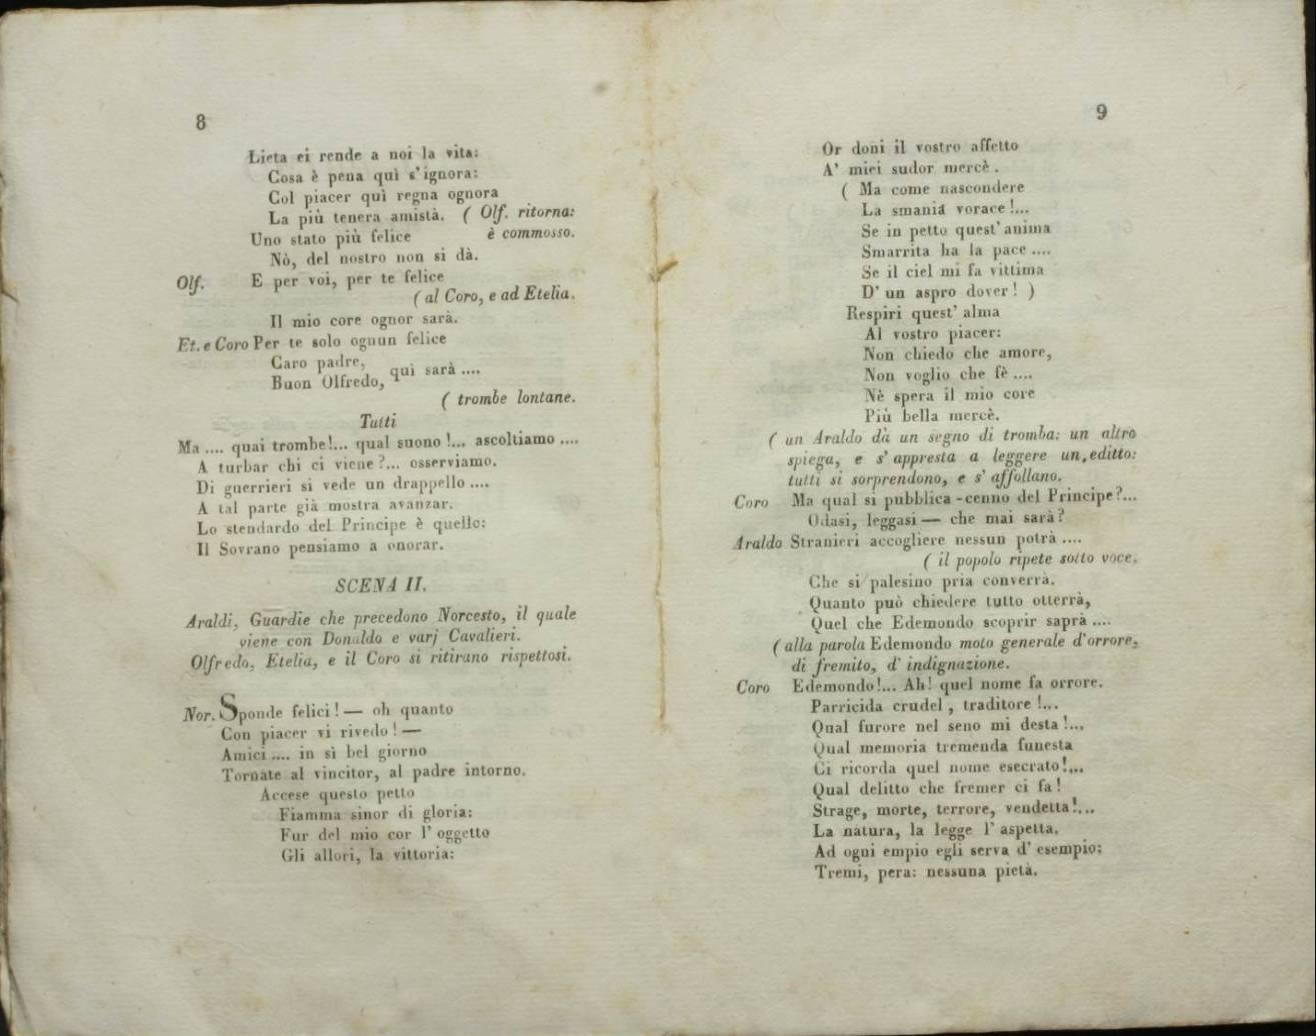 8
Lieta ci rende a noi la vita:
Cosa è pena quì s'ignora:
Col piacer quì regna ognora
La più tenera amistà. ( Olf. ritorna:
Uno stato più felice è commosso.
Nò, del nostro non si dà.
Olf. E per voi, per te felice
( al Coro, e ad Etelia.
Il mio core ognor sarà.
Et. e Coro Per te solo ognun felice
Caro padre,
Buon Olfredo, qui sarà ....
( trombe lontane.
Tutti
Ma .... quai trombe!... qual suono !... ascoltiamo ....
A turbar chi ci viene ?... osserviamo.
Di guerrieri si vede un drappello ....
A tal parte già mostra avanzar.
Lo stendardo del Principe è quello:
Il Sovrano pensiamo a onorar.
SCENA II.
Araldi, Guardie che precedono Norcesto, il quale
viene con Donaldo e varj Cavalieri.
Olfredo, Etelia, e il Coro si ritirano rispettosi.
Nor. Sponde felici! — oh quanto
Con piacer vi rivedo ! —
Amici .... in sì bel giorno
Tornate al vincitor, al padre intorno.
Accese questo petto
Fiamma sinor di gloria:
Fur del mio cor l' oggetto
Gli allori, la vittoria:
9
Or doni il vostro affetto
A' miei sudor mercè .
( Ma come nascondere
La smania vorace !...
Se in petto quest' anima
Smarrita ha la pace ....
Se il ciel mi fa vittima
D' un aspro dover ! )
Respiri quest' alma
Al vostro piacer:
Non chiedo che amore,
Non voglio che fè ....
Nè spera il mio core
Più bella mercè.
( un Araldo dà un segno di tromba: un altro
spiega, e s' appresta a leggere un editto:
tutti si sorprendono, e s' affollano.
Coro Ma qual si pubblica - cenno del Principe ?...
Odasi, leggasi — che mai sarà ?
Araldo Stranieri accogliere nessun potrà ....
( il popolo ripete sotto voce.
Che si palesino pria converrà.
Quanto può chiedere tutto otterrà,
Quel che Edemondo scoprir saprà ....
( alla parola Edemondo moto generale d'orrore,
di fremito, d' indignazione.
Coro Edemondo!... Ah! quel nome fa orrore.
Parricida crudel , traditore !...
Qual furore nel seno mi desta !...
Qual memoria tremenda funesta
Ci ricorda quel nome esecrato!...
Qual delitto che fremer ci fa !
Strage, morte, terrore, vendetta!...
La natura, la legge l' aspetta.
Ad ogni empio egli serva d' esempio:
Tremi, pera: nessuna pietà.